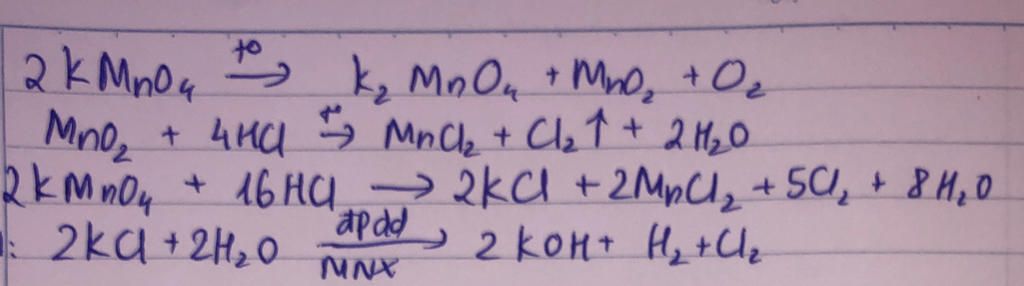 2KMnO₄ →(t°) K₂MnO₄ + MnO₂ + O₂
MnO₂ + 4HCl →(t°) MnCl₂ + Cl₂↑ + 2H₂O
2KMnO₄ + 16HCl → 2KCl + 2MnCl₂ + 5Cl₂ + 8H₂O
: 2KCl + 2H₂O →(đpdd / MNX) 2KOH + H₂ + Cl₂